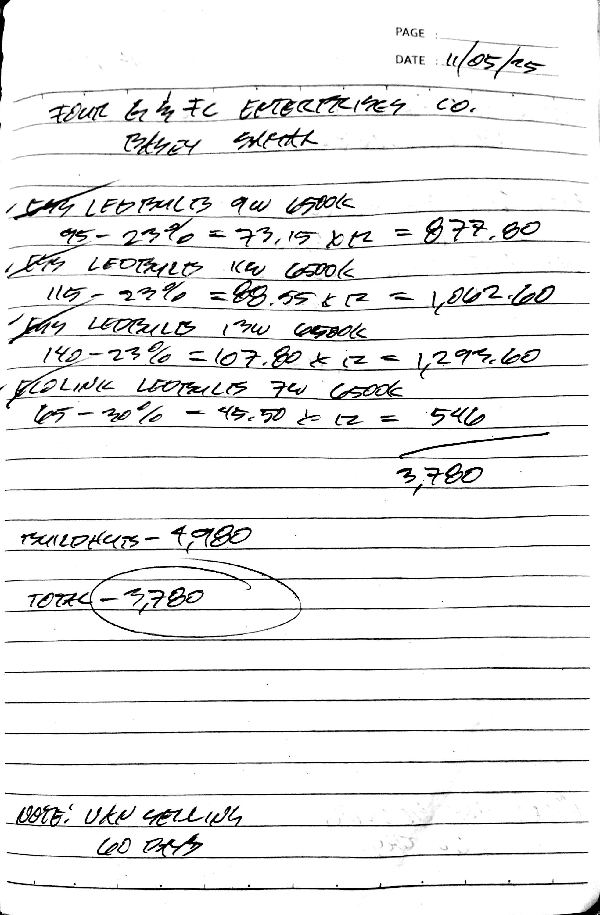 PAGE :
DATE : 11/05/25
FOUR G & FC ENTERPRISES CO.
BASEY SAMAR
LEDBULB 9W 6500K
95 - 23% = 73.15 x 12 = 877.80
LEDBULB 11W 6500K
115 - 23% = 88.55 x 12 = 1,062.60
LEDBULB 13W 6500K
140 - 23% = 107.80 x 12 = 1,293.60
ECOLINK LEDBULB 7W 6500K
65 - 30% = 45.50 x 12 = 546
3,780
BUILDHUB - 4,980
TOTAL - 3,780
NOTE: VAN SELLING
60 DAYS